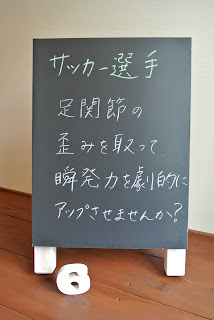 サッカー選手
足関節の
歪みを取って
瞬発力を劇的に
アップさせませんか?
6